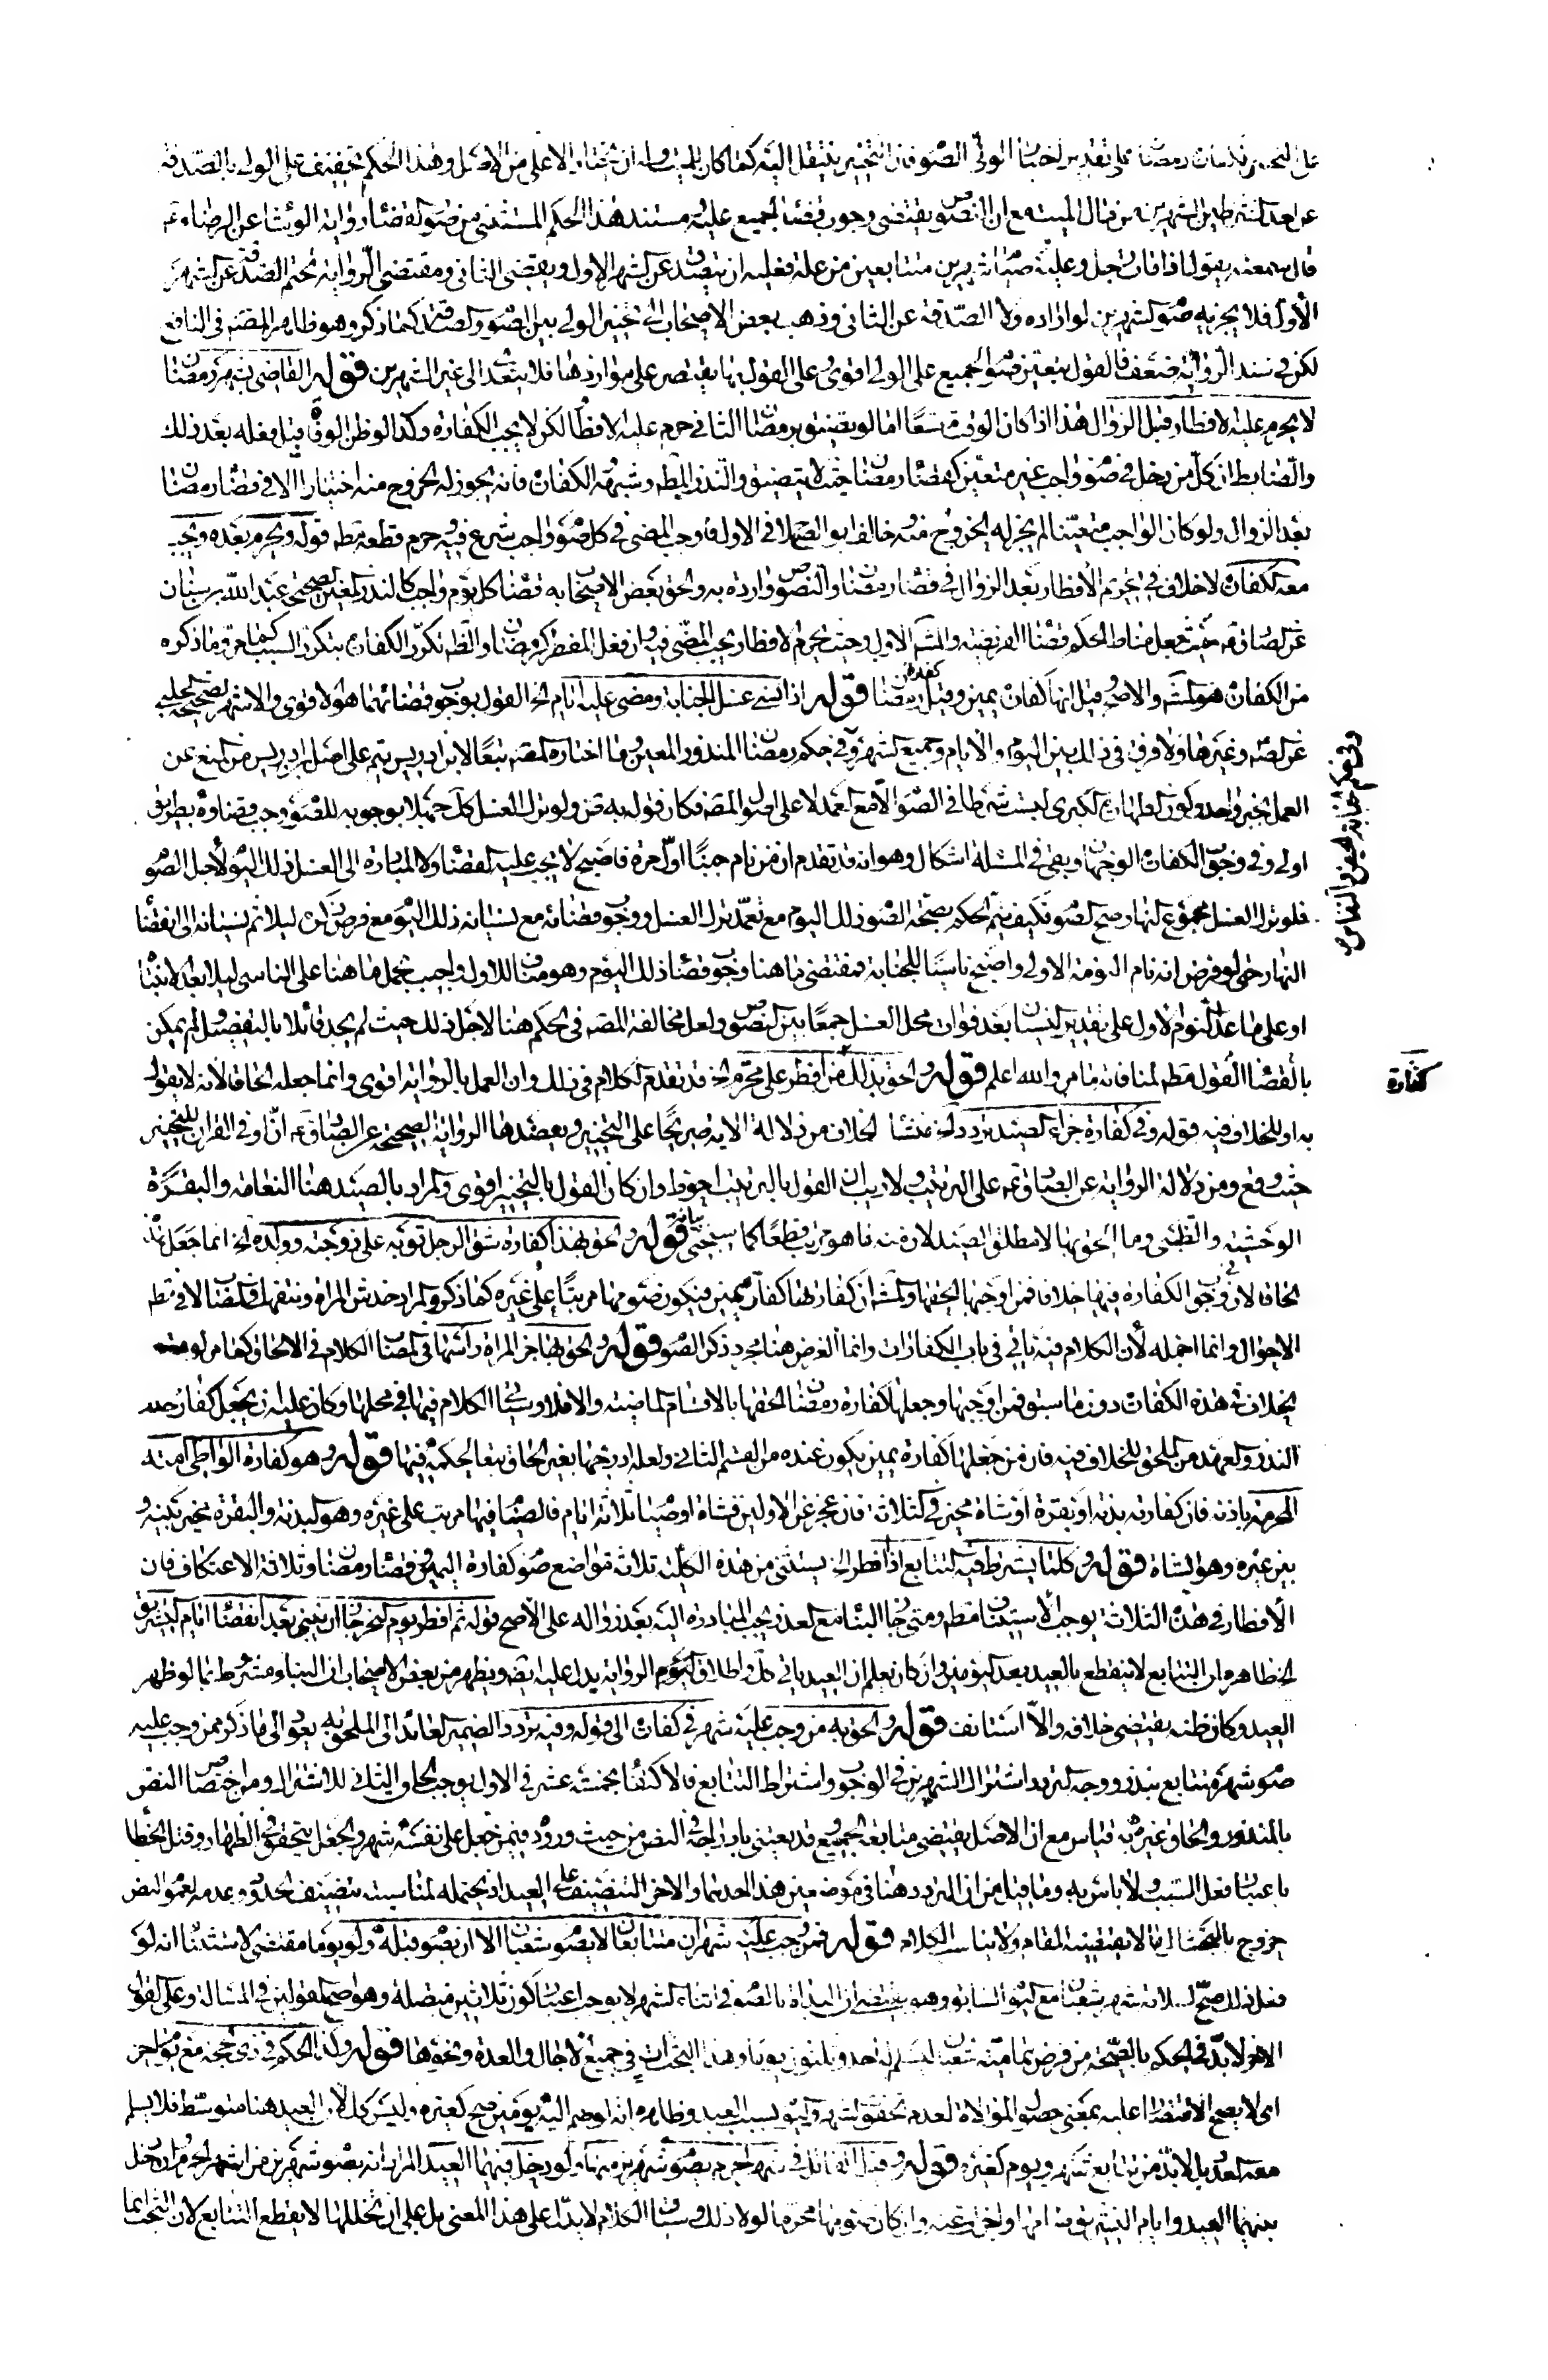 على تقدير اختيار الولي الصوم فان التخيير ينتقل اليه كما كان للميت وله ان يختار الاعلى من الاصل وهذا الحكم تخفيف على الولي بالصدقة
عن احد الشهرين من مال الميت مع ان النصوص يقتضى وجوب قضاء الجميع عليه ومستند هذا الحكم المستثنى من صور القضاء رواية الوشاء عن الرضا ع
قال سمعته يقول اذا مات رجل وعليه صيام شهرين متتابعين من علة فعليه ان يتصدق عن الشهر الاول ويقضى الثانى ومقتضى الرواية تحتم الصدقة عن الشهر
الاول فلا يجزيه صوم الشهرين لو اراده ولا الصدقة عن الثانى وذهب بعض الاصحاب الى تخيير الولي بين الصوم والصدقة كما ذكر وهو ظاهر المصنف فى النافع
لكن فى سند الرواية ضعف فالقول بتعين صوم الجميع على الولي اقوى وعلى القول بها يقتصر على مواردها فلا يتعدى الى غير الشهرين قوله القاضى لشهر رمضان
لا يحرم عليه الافطار قبل الزوال هذا اذا كان الوقت متسعا اما لو تضيق برمضان الثانى حرم عليه الافطار لكن لا يجب الكفارة وكذا لو ظن الوفاة قبل فعله بعد ذلك
والضابط ان كل من دخل فى صوم واجب غير متعين كقضاء رمضان حيث لا يتضيق والنذر المطلق وشبهه الكفارات فانه يجوز له الخروج منه اختيارا الا فى قضاء رمضان
بعد الزوال ولو كان الواجب متعينا لم يجز له الخروج منه وخالف ابو الصلاح فى الاول فاوجب المضى فى كل صوم واجب شرع فيه وحرم قطعه مطلقا قوله ويحرم بعده ويجب
معه الكفارة لا خلاف فى تحريم الافطار بعد الزوال فى قضاء رمضان والنصوص واردة به والحق بعض الاصحاب به قضاء كل يوم واجب كالنذر المعين لصحيحة عبد الله بن سنان
عن الصادق ع حيث جعل مناط الحكم قضاء الفريضة والمشهور الاول وحيث يحرم الافطار يجب المضى فيه وان فعل المفطر كرمضان والظاهر تكرر الكفارة بتكرر السبب كما مر وما ذكره
من الكفارة هو المشهور والاصح وقيل انها كفارة يمين وقيل كفارة رمضان قوله اذا نسى غسل الجنابة ومضى عليه ايام الخ القول بوجوب قضائهما هو الاقوى والاشهر لصحيحة الحلبى
عن الصادق وغيرها ولا فرق فى ذلك بين اليوم والايام وجميع الشهر وفى حكم رمضان المنذور المعين وما اختاره المصنف تبعا لابن ادريس يتم على اصل ابن ادريس من المنع عن
العمل بخبر الواحد وكون الطهارة الكبرى ليست شرطا فى الصوم الا مع العمد لا على اصول المصنف فكان قوله به
اولى وفى وجوب الكفارة الوجهان وبقى فى المسئلة اشكال وهو انه قد تقدم ان من نام جنبا اول مرة فاصبح لا يجب عليه القضاء ولا المبادرة الى الغسل ذلك اليوم لاجل الصوم
فلو ترك الغسل مجموع النهار صح الصوم فكيف يتم الحكم بصحة الصوم ذلك اليوم مع تعمد ترك الغسل ووجوب قضائه مع نسيانه ذلك اليوم مع فرض ليلا ثم نسيانه الى انقضاء
النهار حتى لو فرض انه نام النومة الاولى واصبح ناسيا للجنابة فمقتضى ما هنا وجوب قضاء ذلك اليوم وهو مناف للاول واجيب بحمل ما هنا على الناسى ليلا بعد الانتباه
او على ما عدا النوم الاول على تقدير النسيان بعد فوات محل الغسل جمعا بين النصوص ولعل مخالفة المصنف فى الحكم هنا لاجل ذلك حيث لم يجد قائلا بالتفصيل ولم يمكن
بالقضاء القول مطلقا لمنافاته ما مر والله اعلم قوله والحق بذلك من افطر على محرم الخ قد تقدم الكلام فى ذلك وان العمل بالرواية اقوى وانما جعله الحاقا لانه لا يقول
به او للخلاف فيه قوله وفى كفارة جزاء الصيد تردد الخ منشا الخلاف من دلالة الاية صريحا على التخيير ويعضدها الرواية الصحيحة عن الصادق ع ان او فى القران للتخيير
حيث وقع ومن دلالة الرواية عن الصادق ع على الترتيب ولا ريب ان القول بالترتيب احوط وان كان القول بالتخيير اقوى والمراد بالصيد هنا النعامة والبقرة
الوحشية والظبى وما الحق بها لا مطلق الصيد لان منه ما هو مرتب قطعا كما سيجئ بيانه قوله والحق بهذا كفارة شق الرجل ثوبه على زوجته وولده الخ انما جعل هذا
الحاقا لان فى وجوب الكفارة فيها خلافا فمن اوجبها الحقها والمشهور ان كفارتها كفارة يمين فيكون صومها مرتبا على غيره كما ذكر والمراد خدش المراة ونتفها فى المصاب لا فى مطلق
الاحوال وانما اجمله لان الكلام فيه ياتى فى باب الكفارات وانما الغرض هنا مجرد ذكر الصوم قوله والحق بها جز المراة راسها فى المصاب الكلام فى الالحاق كما مر
الخلاف فى هذه الكفارة دون ما سبق فمن اوجبها وجعلها كفارة رمضان الحقها بالاقسام الماضية والا فلا وسيجئ الكلام فيها فى محلها وكان عليه ان يجعل كفارة خلف
النذر والعهد من الملحق للخلاف فيه فان من جعلها كفارة يمين يكون عنده من القسم الثانى ولعله ادرجها بغير الحاق تبعا لحكمه فيها قوله وهو كفارة الواطى امته
المحرمة باذنه فان كفارته بدنة او بقرة او شاة مخير فى الثلاثة فان عجز عن الاولين فشاة او صيام ثلاثة ايام فالصيام فيها مرتب على غيره وهو البدنة والبقرة مخير بينه و
بين غيره وهو الشاة قوله وكلما يشترط فيه التتابع اذا افطر الخ يستثنى من هذه الكلية ثلاثة مواضع صوم كفارة اليمين وقضاء رمضان وثلاثة الاعتكاف فان
الافطار فى هذه الثلاثة يوجب الاستيناف مطلقا ومتى جاز البناء مع العذر يجب المبادرة اليه بعد زواله على الاصح قوله ثم افطر يوم النحر جاز ان يبنى بعد انقضاء ايام التشريق
الخ ظاهره ان التتابع لا ينقطع بالعيد بعد اليومين وان كان يعلم ان العيد ياتى واطلاق الرواية يدل عليه ايضا ويظهر من بعض الاصحاب ان البناء مشروط بما لو ظهر
العيد وكان ظنه يقتضى خلافه والا استانف قوله والحق به من وجب عليه شهر فى كفارة الى قوله وفيه تردد الضمير العائد الى الملحق به يعود الى ما ذكر ممن وجب عليه
صوم شهر متتابع بنذر ووجه التردد اشتراك الشهرين فى الوجوب واشتراط التتابع فالاكتفاء بخمسة عشر فى الاول يوجب الحاق الثانى للاشتراك ومن اختصاص النص
بالمنذور والحاق غيره به قياس مع ان الاصل يقتضى متابعة الجميع وقد يعتنى بادراجه فى النص من حيث وروده فيمن جعل على نفسه شهرا والجعل يتحقق فى الظهار وقتل الخطا
باعتبار فعل السبب ولا باس به وما قيل من ان التردد هنا فى موضعين هذا احدهما والاخر التنصيف على العبد اذ يحتمله لمناسبته تنصيف الحدود وعدمه لعموم النص
خروج بالبحث الى ما لا يقتضيه المقام ولا يناسب الكلام قوله فمن وجب عليه شهران متتابعان لا يصوم شعبان الا ان يصوم قبله ولو يوما مقتضى الاستثناء انه لو
فعل ذلك صح شهر شعبان مع اليوم السابق وهو يقتضى ان البداة بالصوم فى اثناء الشهر لا يوجب اعتبار كون ثلاثين منفصلة وهو اصح القولين فى المسالة وعلى القول
الاخر لا بد فى الحكم بالصحة من فرض تمامية شعبان ليسلم له احد وثلثون يوما وهذا البحث ات فى جميع الاجال والعدة ونحوها قوله وكذا الحكم فى ذى الحجة مع يوم اخر
اى لا يصح الاقتصار عليه بمعنى حصول الموالاة لعدم تحقق شهر ويوم بسبب العيد وظاهره انه لو ضم اليه يومين صح كغيره وليس كذلك لان العيد هنا متوسط فلا يسلم
معه العدد بل لا بد من تتابع شهر ويوم كغيره قوله وقيل القاتل فى شهر احرم يصوم شهرين منها ولو دخل فيهما العيد المراد انه يصوم شهرين من اشهر الحرم وان دخل
بينهما العيد وايام التشريق وان كان صومها محرما لولا ذلك وسياق الكلام لا يدل على هذا المعنى بل على ان تخللها لا يقطع التتابع لان البحث انما
وفى حكم الجنابة الحيض والنفاس
كفارة